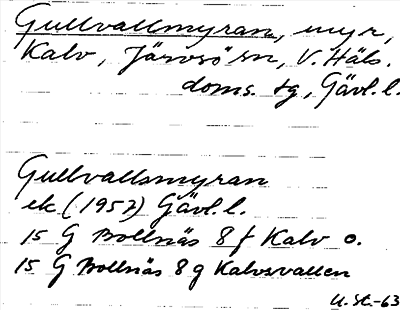 Gullvallmyran, myr,
Kalv, Järvsö sn, V. Häls.
doms. tg, Gävl. l.
Gullvallsmyran
ek (1957) Gävl. l.
15 G Bollnäs 8 f Kalv o.
15 G Bollnäs 8 g Kalvsvallen
U. St. -63